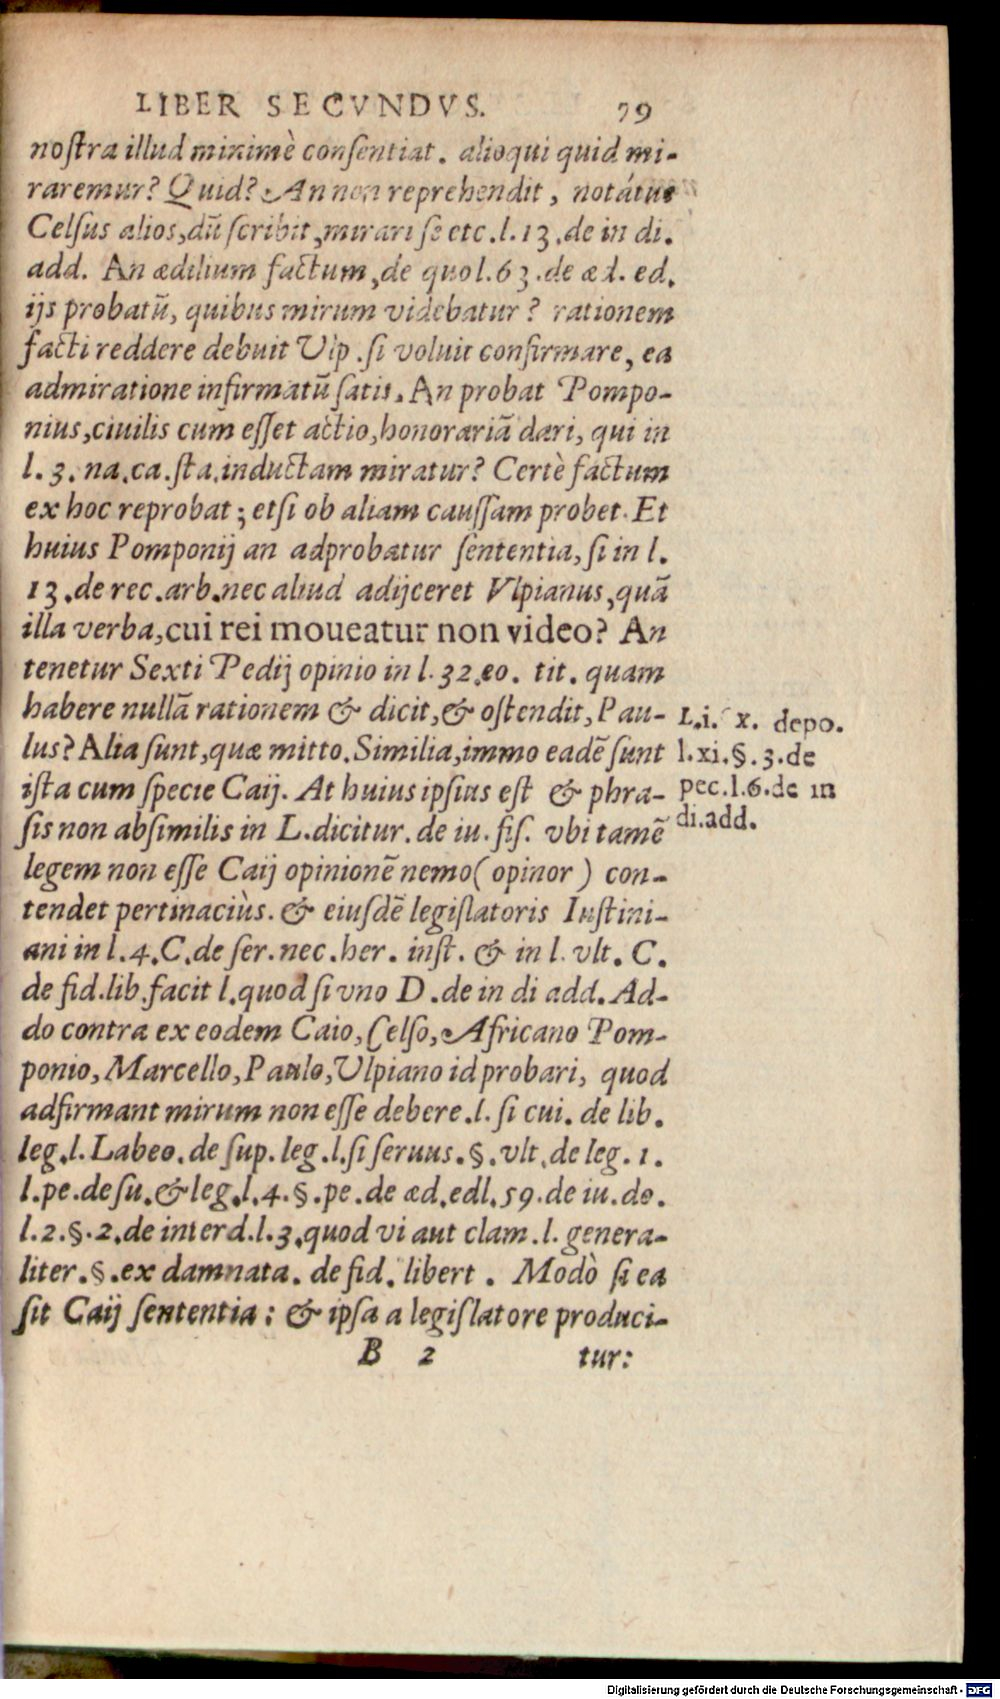 LIBER SECVNDVS. 79
noſtra illud minimè conſentiat. alioqui quid mi-
raremur? Quid? An non reprehendit, notátue
Celſus alios, dū ſcribit, mirari ſe etc. l. 13. de in di.
add. An ædilium factum, de quo l. 63. de æd. ed.
ijs probatū, quibus mirum videbatur? rationem
facti reddere debuit Vlp. ſi voluit confirmare, ea
admiratione infirmatū ſatis. An probat Pompo-
nius, ciuilis cum eſſet actio, honorariā dari, qui in
l. 3. na. ca. ſta. inductam miratur? Certè factum
ex hoc reprobat; etſi ob aliam cauſſam probet. Et
huius Pomponij an adprobatur ſententia, ſi in l.
13. de rec. arb. nec aliud adijceret Vlpianus, quā
illa verba, cui rei moueatur non video? An
tenetur Sexti Pedij opinio in l. 32. eo. tit. quam
habere nullā rationem & dicit, & oſtendit, Pau-
lus? Alia ſunt, quæ mitto. Similia, immo eadē ſunt
iſta cum ſpecie Caij. At huius ipſius eſt & phra-
ſis non abſimilis in L. dicitur. de iu. fiſ. vbi tamē
legem non eſſe Caij opinionē nemo (opinor) con-
tendet pertinaciùs. & eiuſdē legiſlatoris Iuſtini-
ani in l. 4. C. de ſer. nec. her. inſt. & in l. vlt. C.
de fid. lib. facit l. quod ſi vno D. de in di add. Ad-
do contra ex eodem Caio, Celſo, Africano Pom-
ponio, Marcello, Paulo, Vlpiano id probari, quod
adfirmant mirum non eſſe debere. l. ſi cui. de lib.
leg. l. Labeo. de ſup. leg. l. ſi ſeruus. §. vlt. de leg. 1.
l. pe. de ſu. & leg. l. 4. §. pe. de æd. edl. 59. de iu. do.
l. 2. §. 2. de interd. l. 3. quod vi aut clam. l. genera-
liter. §. ex damnata. de fid. libert. Modò ſi ea
ſit Caij ſententia: & ipſa a legiſlatore produci-
B 2 tur:
L. i. x. depo.
l. xi. §. 3. de
pec. l. 6. de in
di. add.
Digitalisierung gefördert durch die Deutsche Forschungsgemeinschaft - DFG